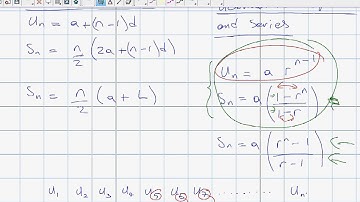 Uₙ = a + (n-1)d
Sₙ = n/2 (2a + (n-1)d)
Sₙ = n/2 (a + L)
and series
Uₙ = a rⁿ⁻¹
Sₙ = a (1 - rⁿ / 1 - r)
Sₙ = a (rⁿ - 1 / r - 1)
U₁ U₂ U₃ U₄ U₅ U₆ U₇ ......... Uₙ